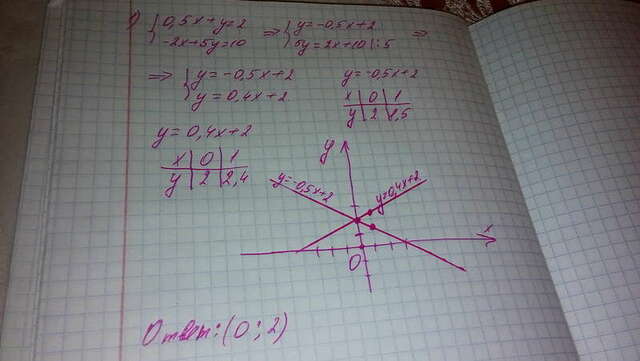 1) { 0,5x+y=2 => { y=-0,5x+2 =>
{ -2x+5y=10 { 5y=2x+10 |:5
=> { y=-0,5x+2
{ y=0,4x+2
y=-0,5x+2
x | 0 | 1
y | 2 | 1,5
y=0,4x+2
x | 0 | 1
y | 2 | 2,4
y
y=-0,5x+2
y=0,4x+2
0
x
Ответ: (0; 2)